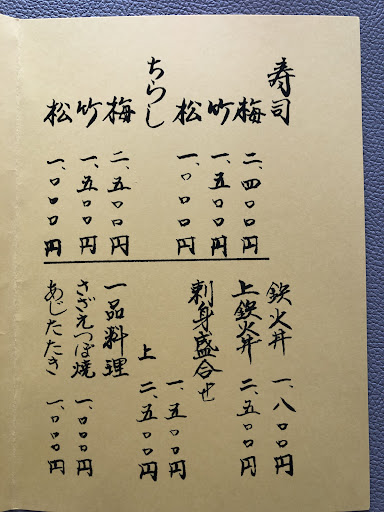 寿司
梅 二、四〇〇円
竹 一、五〇〇円
松 一、〇〇〇円
ちらし
梅 二、五〇〇円
竹 一、五〇〇円
松 一、〇〇〇円
鉄火丼 一、八〇〇円
上鉄火丼 二、五〇〇円
刺身盛合せ
一、五〇〇円
上 二、五〇〇円
一品料理
さざえつぼ焼 一、〇〇〇円
あじたたき 一、〇〇〇円